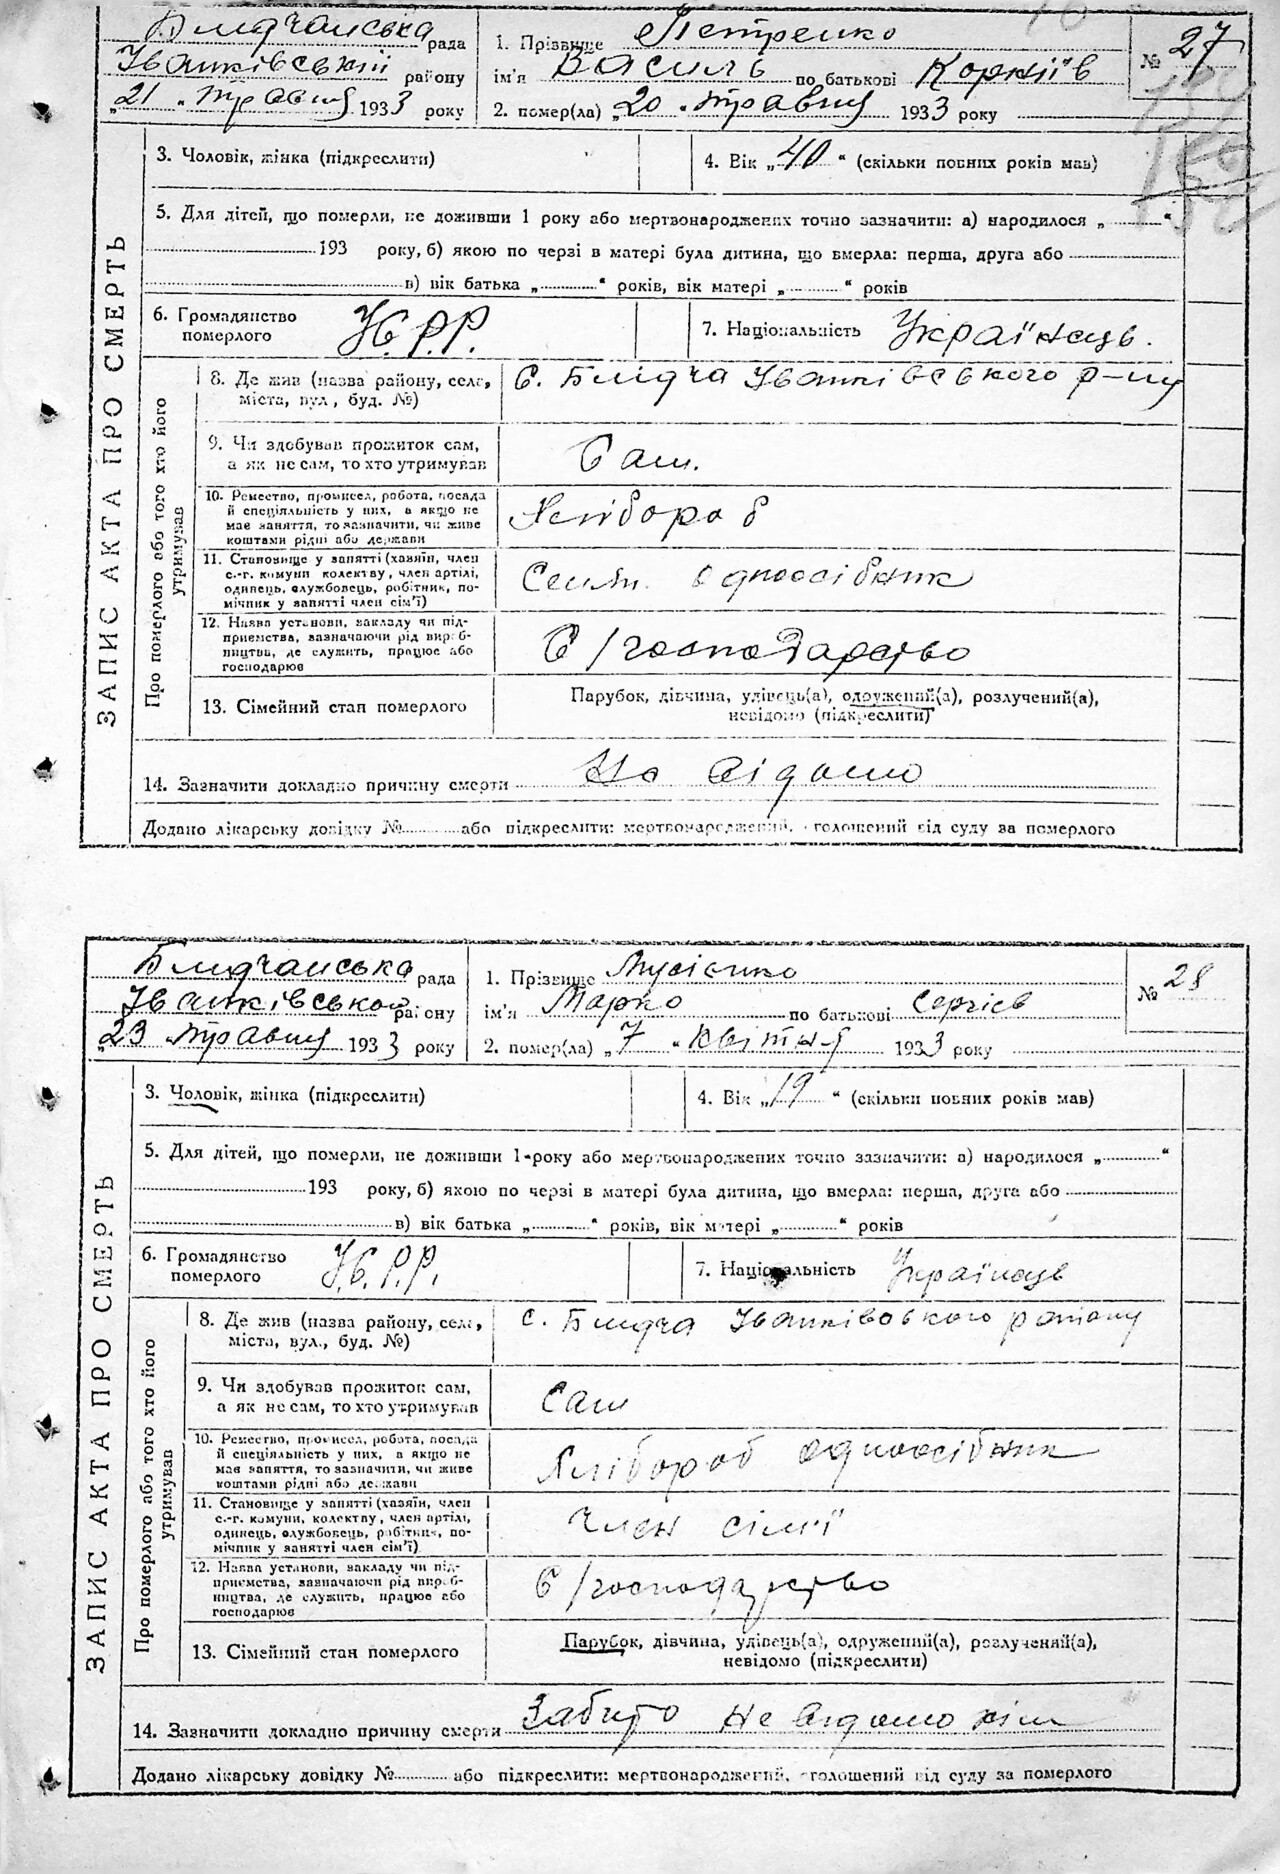 Блидчанська рада
Іванківський району
„21 „ травня 1933 року
1. Прізвище Петренко
ім'я Василь по батькові Корніїв
2. помер(ла) „20 „ травня 1933 року
№ 27
ЗАПИС АКТА ПРО СМЕРТЬ
3. Чоловік, жінка (підкреслити)
4. Вік „40“ (скільки повних років мав)
5. Для дітей, що померли, не доживши 1 року або мертвонароджених точно зазначити: а) народилося „ “
193 року, б) якою по черзі в матері була дитина, що вмерла: перша, друга або
в) вік батька „ “ років, вік матері „ “ років
6. Громадянство
померлого
У.С.Р.Р.
7. Національність Українець.
Про померлого або того хто його
утримував
8. Де жив (назва району, села,
міста, вул., буд. №)
С. Блидча Іванківського р-ну
9. Чи здобував прожиток сам,
а як не сам, то хто утримував
Сам.
10. Ремество, промисел, робота, посада
й спеціяльність у них, а якщо не
має заняття, то зазначити, чи живе
коштами рідні або держави
Хлібороб
11. Становище у занятті (хазяїн, член
с.-г. комуни колективу, член артілі,
одинець, службовець, робітник, по-
мічник у занятті член сім'ї)
Селян. одноосібник
12. Назва установи, закладу чи під-
приємства, зазначаючи рід вироб-
ництва, де служить, працює або
господарює
С/господарство
13. Сімейний стан померлого
Парубок, дівчина, удівець(а), одружений(а), розлучений(а),
невідомо (підкреслити)
14. Зазначити докладно причину смерти Не відомо
Додано лікарську довідку № або підкреслити: мертвонароджений, оголошений від суду за померлого
Блидчанська рада
Іванківського району
„23 травня 1933 року
1. Прізвище Мусієнко
ім'я Марко по батькові Сергієв
2. помер(ла) „7 “ квітня 1933 року
№ 28
ЗАПИС АКТА ПРО СМЕРТЬ
3. Чоловік, жінка (підкреслити)
4. Вік „19“ (скільки повних років мав)
5. Для дітей, що померли, не доживши 1 року або мертвонароджених точно зазначити: а) народилося „ “
193 року, б) якою по черзі в матері була дитина, що вмерла: перша, друга або
в) вік батька „ “ років, вік матері „ “ років
6. Громадянство
померлого
У.С.Р.Р.
7. Національність Українець
Про померлого або того хто його
утримував
8. Де жив (назва району, села,
міста, вул., буд. №)
с. Блидча Іванківського району
9. Чи здобував прожиток сам,
а як не сам, то хто утримував
Сам
10. Ремество, промисел, робота, посада
й спеціяльність у них, а якщо не
має заняття, то зазначити, чи живе
коштами рідні або держави
Хлібороб одноосібник
11. Становище у занятті (хазяїн, член
с.-г. комуни, колективу, член артілі,
одинець, службовець, робітник, по-
мічник у занятті член сім'ї)
Член сім'ї
12. Назва установи, закладу чи під-
приємства, зазначаючи рід вироб-
ництва, де служить, працює або
господарює
С/господарство
13. Сімейний стан померлого
Парубок, дівчина, удівець(а), одружений(а), розлучений(а),
невідомо (підкреслити)
14. Зазначити докладно причину смерти Забито не відомо кім
Додано лікарську довідку № або підкреслити: мертвонароджений, оголошений від суду за померлого